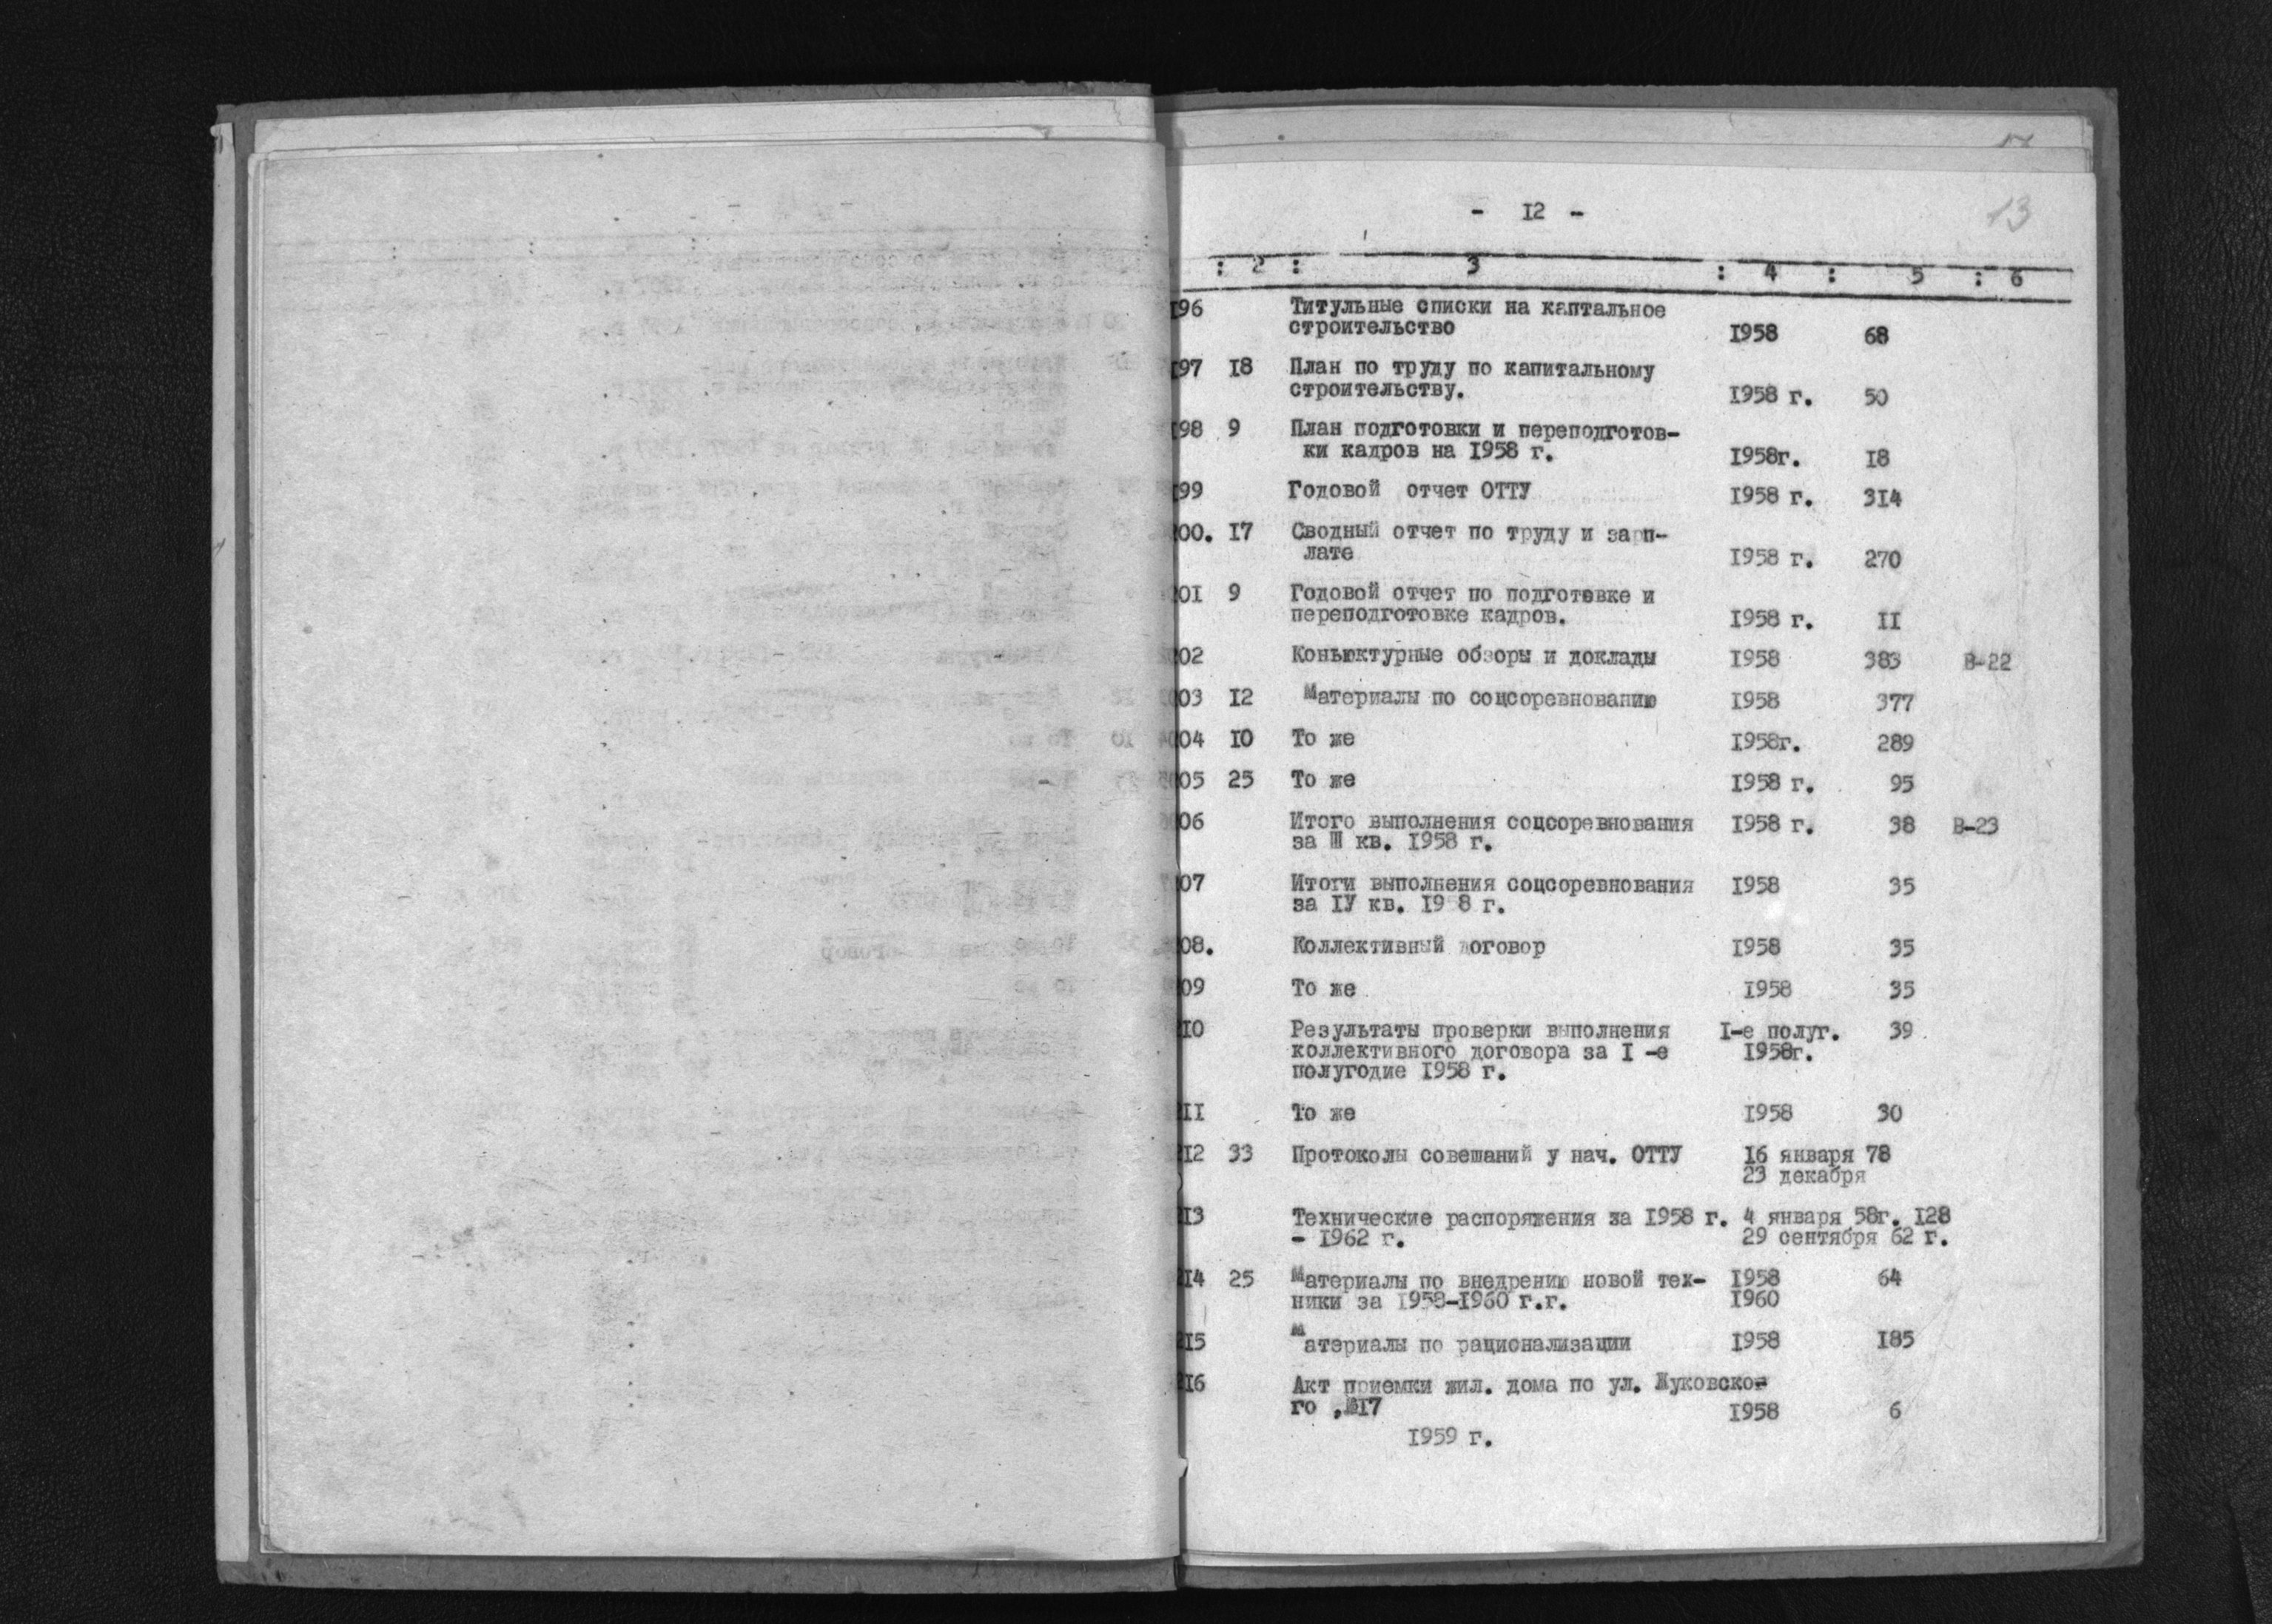 - I2 -
13
: 2 : 3 : 4 : 5 : 6
I96 Титульные списки на каптальное
строительство I958 68
I97 I8 План по труду по капитальному
строительству. I958 г. 50
I98 9 План подготовки и переподготов-
ки кадров на I958 г. I958г. I8
I99 Годовой отчет ОТТУ I958 г. 3I4
00. I7 Сводный отчет по труду и зарп-
лате I958 г. 270
0I 9 Годовой отчет по подготовке и
переподготовке кадров. I958 г. II
02 Коньюктурные обзоры и доклады I958 383 В-22
03 I2 Материалы по соцсоревнованию I958 377
04 I0 То же I958г. 289
05 25 То же I958 г. 95
06 Итого выполнения соцсоревнования I958 г. 38 В-23
за III кв. I958 г.
07 Итоги выполнения соцсоревнования I958 35
за IУ кв. I9 8 г.
08. Коллективный договор I958 35
09 То же I958 35
I0 Результаты проверки выполнения I-е полуг. 39
коллективного договора за I -е I958г.
полугодие I958 г.
II То же I958 30
I2 33 Протоколы совешаний у нач. ОТТУ I6 января 78
23 декабря
I3 Технические распоряжения за I958 г. 4 января 58г. I28
- I962 г. 29 сентября 62 г.
I4 25 Материалы по внедрению новой тех- I958 64
ники за I958-I960 г.г. I960
I5 Материалы по рационализации I958 I85
I6 Акт приемки жил. дома по ул. Жуковско-
го ,№I7 I958 6
I959 г.